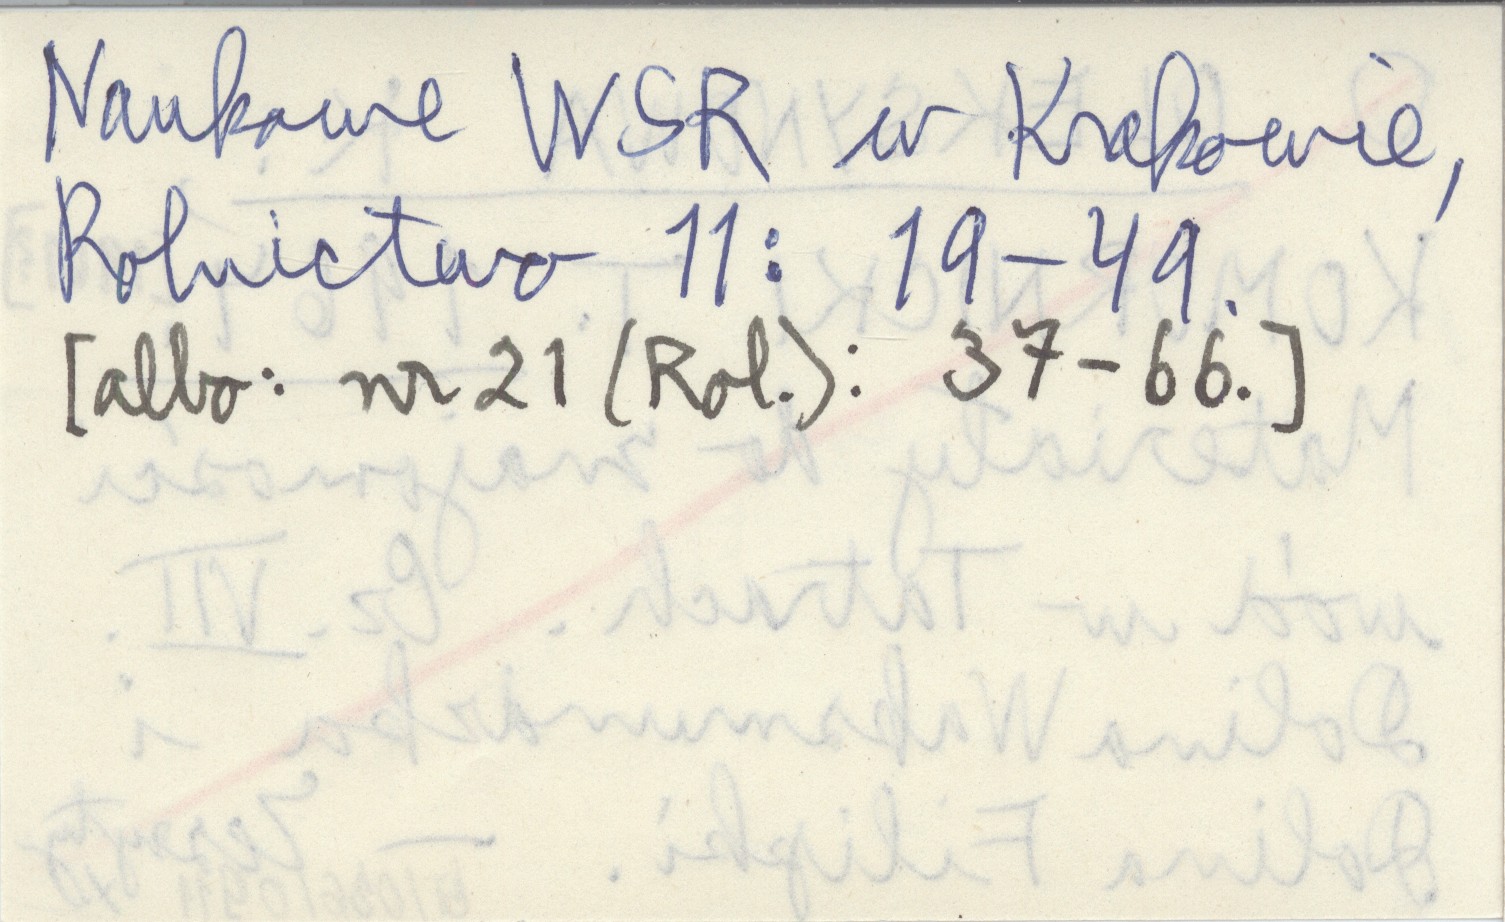 Naukowe WSR w Krakowie,
Rolnictwo 11: 19-49.
[albo: nr 21 (Rol.): 37-66.]